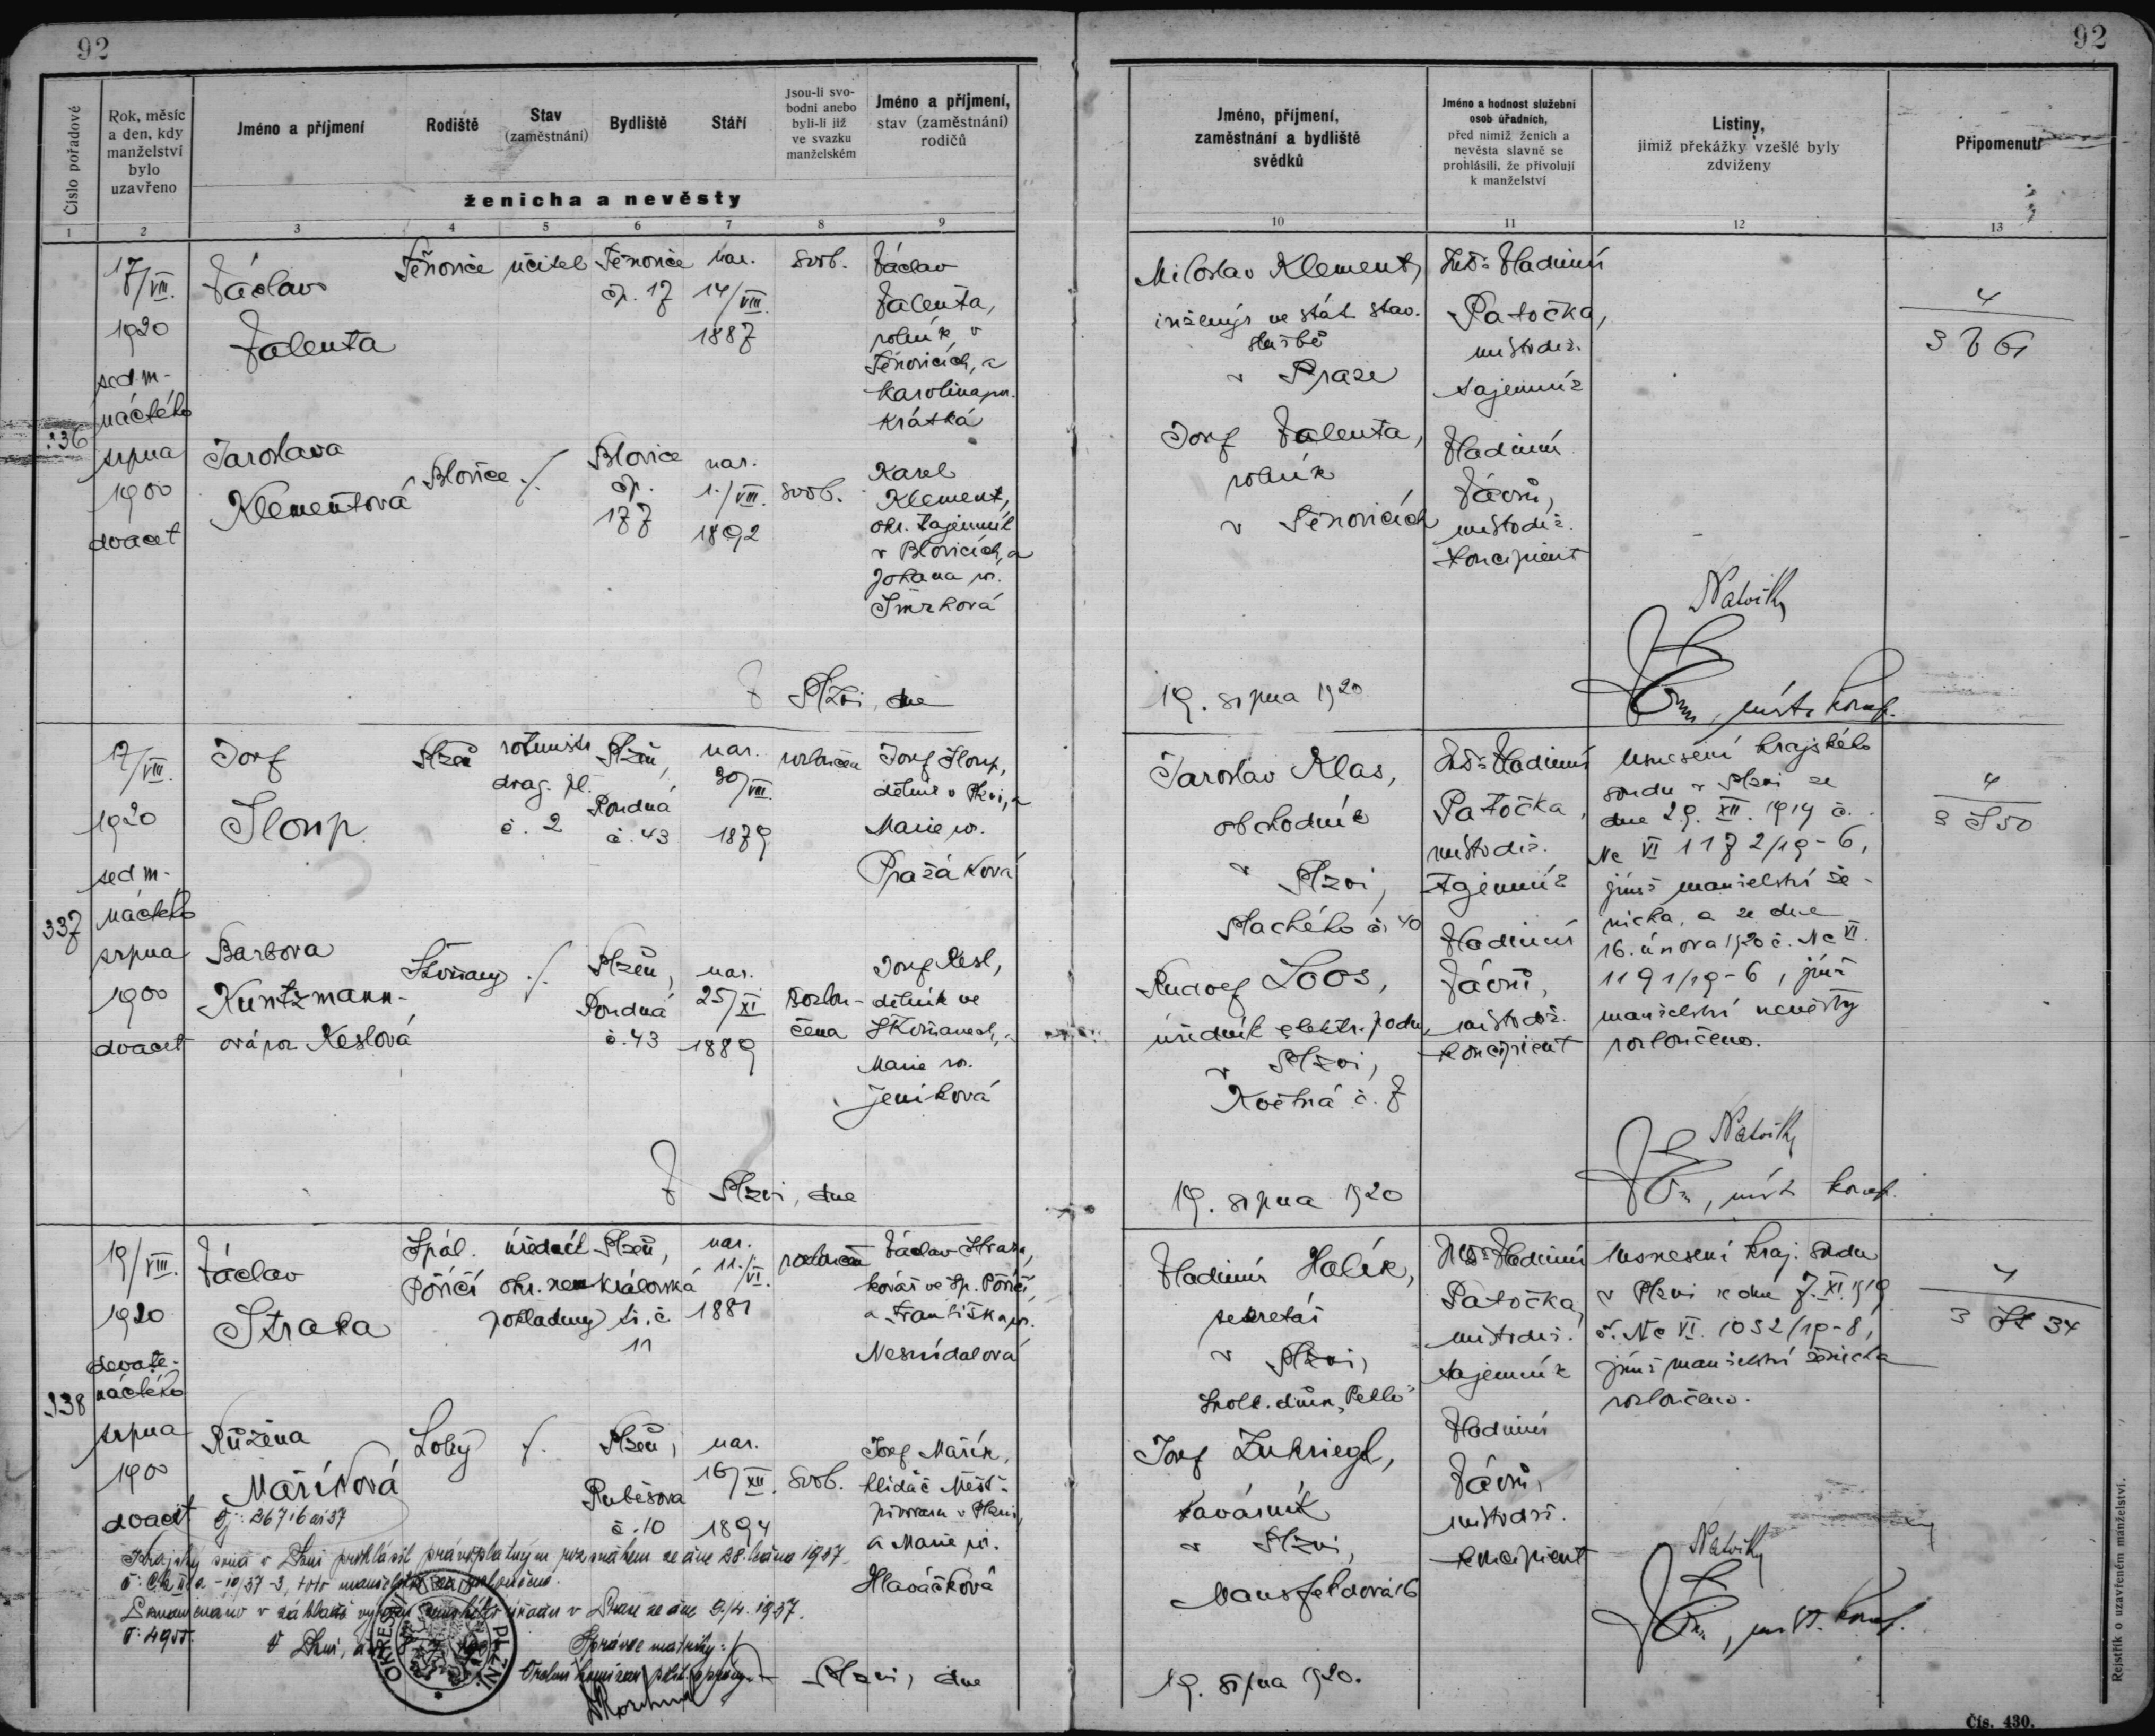 92
92
Číslo pořadové
Rok, měsíc
a den, kdy
manželství
bylo
uzavřeno
Jméno a příjmení
Rodiště
Stav
(zaměstnání)
Bydliště
Stáří
Jsou-li svo-
bodni anebo
byli-li již
ve svazku
manželském
Jméno a příjmení,
stav (zaměstnání)
rodičů
ženicha a nevěsty
Jméno, příjmení,
zaměstnání a bydliště
svědků
Jméno a hodnost služební
osob úřadních,
před nimiž ženich a
nevěsta slavně se
prohlásili, že přivolují
k manželství
Listiny,
jimiž překážky vzešlé byly
zdviženy
Připomenutí
1 2 3 4 5 6 7 8 9
10 11 12 13
336
17/VIII.
1920
sedm-
náctého
srpna
1900
dvacet
Václav
Valenta
Těnovice
učitel
Těnovice
čp. 17
nar.
14/VIII.
1887
svob.
Václav
Valenta,
rolník v
Těnovicích, a
Karolina roz.
Krátká
Jaroslava
Klementová
Blovice
Blovice
čp.
177
nar.
1./VIII.
1892
svob.
Karel
Klement,
okr. tajemník
v Blovicích, a
Johana roz.
Smrková
V Plzni, dne
Miloslav Klement,
inženýr ve stát. stav.
službě
v Praze
Josef Valenta,
rolník
v Těnovicích
JUDr. Vladimír
Patočka,
místodrž.
tajemník
Vladimír
Vávrů,
místodrž.
koncipient
4
3 V 61
19. srpna 1920
337
17/VIII.
1920
sedm-
náctého
srpna
1900
dvacet
Josef
Sloup
Plzeň
rotmistr
drag. pl.
č. 2
Plzeň,
Poudná
č. 43
nar.
30/VIII.
1879
rozloučen
Josef Sloup,
dělník v Plzni, a
Marie roz.
Pražáková
Barbora
Kuntzmann-
ová roz. Keslová
Štěnovice
Plzeň,
Poudná
č. 43
nar.
25/XI
1889
rozlou-
čena
Josef Kesl,
dělník ve
Marie roz.
Jeníková
V Plzni, dne
Jaroslav Klas,
obchodník
v Plzni,
Plachého č. 40
Rudolf Loos,
úředník elektr. podn.
v Plzni,
Květná č. 7
JUDr. Vladimír
Patočka,
místodrž.
tajemník
Vladimír
Vávrů,
místodrž.
koncipient
Usnesení krajského
soudu v Plzni ze
dne 29. XII. 1919 č.
Nc VI 1172/19-6,
jímž manželství že-
nicha, a ze dne
16. února 1920 č. Nc VI.
1191/19-6, jímž
manželství nevěsty
rozloučeno.
4
3 S 50
19. srpna 1920
338
19/VIII.
1920
devate-
náctého
srpna
1900
dvacet
Václav
Straka
Spál.
Poříčí
úředník
okr. nem.
pokladny
Plzeň,
Královská
tř. č.
11
nar.
11./VI.
1881
rozloučen
Václav Straka,
kovář ve Sp. Poříčí,
a Františka roz.
Nesnídalová
Růžena
Maříková
Čj: 26716 ai 37
Plzeň,
Rubešova
č. 10
nar.
16/XII.
1894
svob.
Josef Mařík,
hlídač Měšť.
pivovaru v Plzni,
a Marie roz.
Hlaváčková
Krajský soud v Plzni prohlásil právoplatným rozsudkem ze dne 28. února 1937
č: Ck II a -10/37-3, toto manželství za rozloučeno.
v Praze ze dne 9./4. 1937.
V Plzni,
Správce matriky:
OKRESNÍ ÚŘAD PLZNI
V Plzni, dne
Vladimír Halík,
sekretář
v Plzni,
Josef Zukriegl,
kavárník
v Plzni,
Mansfeldova 16
JUDr. Vladimír
Patočka,
místodrž.
tajemník
Vladimír
Vávrů,
místodrž.
koncipient
Usnesení kraj. soudu
v Plzni ze dne 7. XI. 1919
č. Nc VI. 1032/19-8,
jímž manželství ženicha
rozloučeno.
4
3 St 34
19. srpna 1920.
Rejstřík o uzavřeném manželství.
Čís. 430.